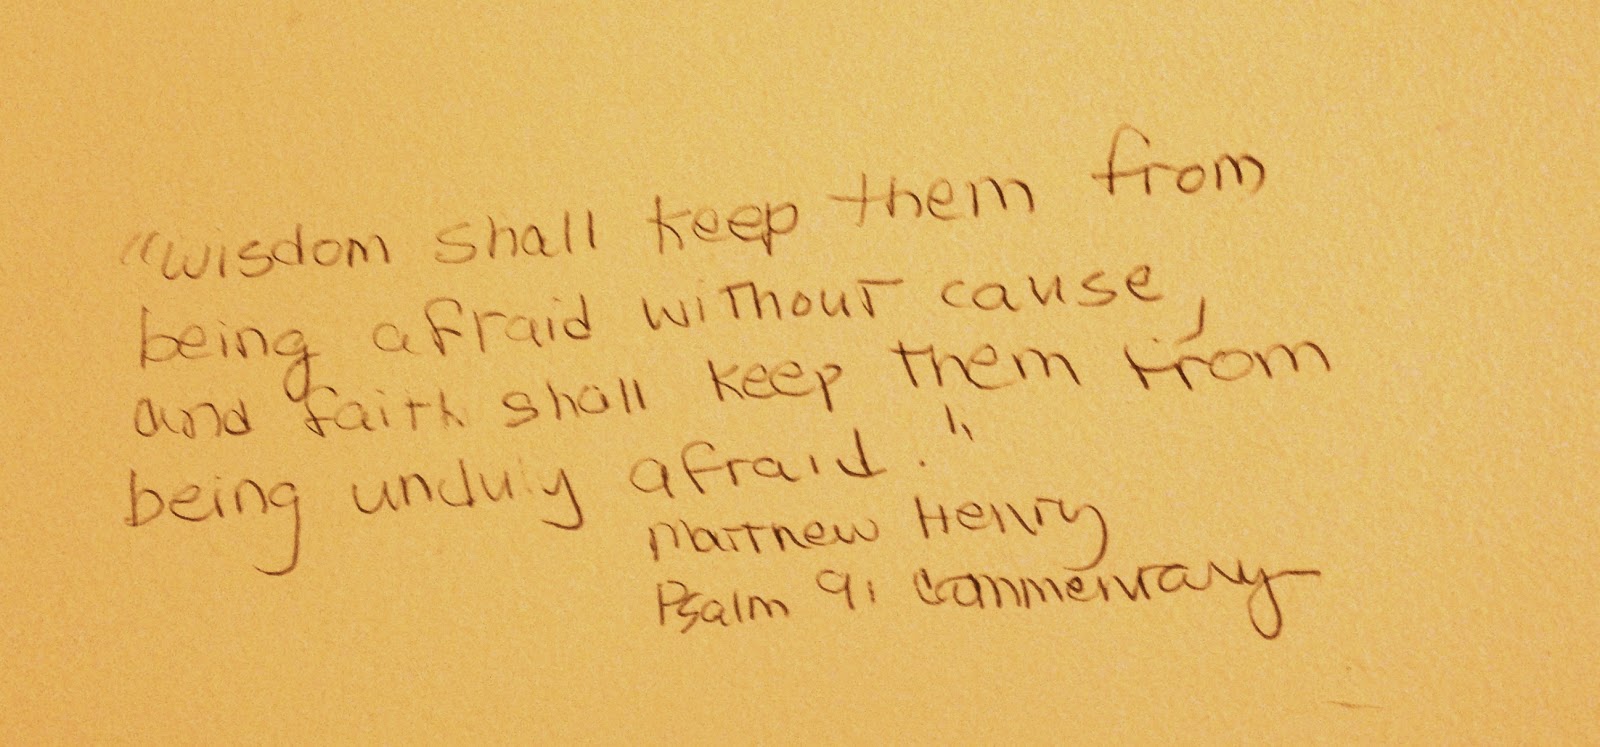 "wisdom shall keep them from
being afraid without cause,
and faith shall keep them from
being unduly afraid."
Matthew Henry
Psalm 91 Commentary